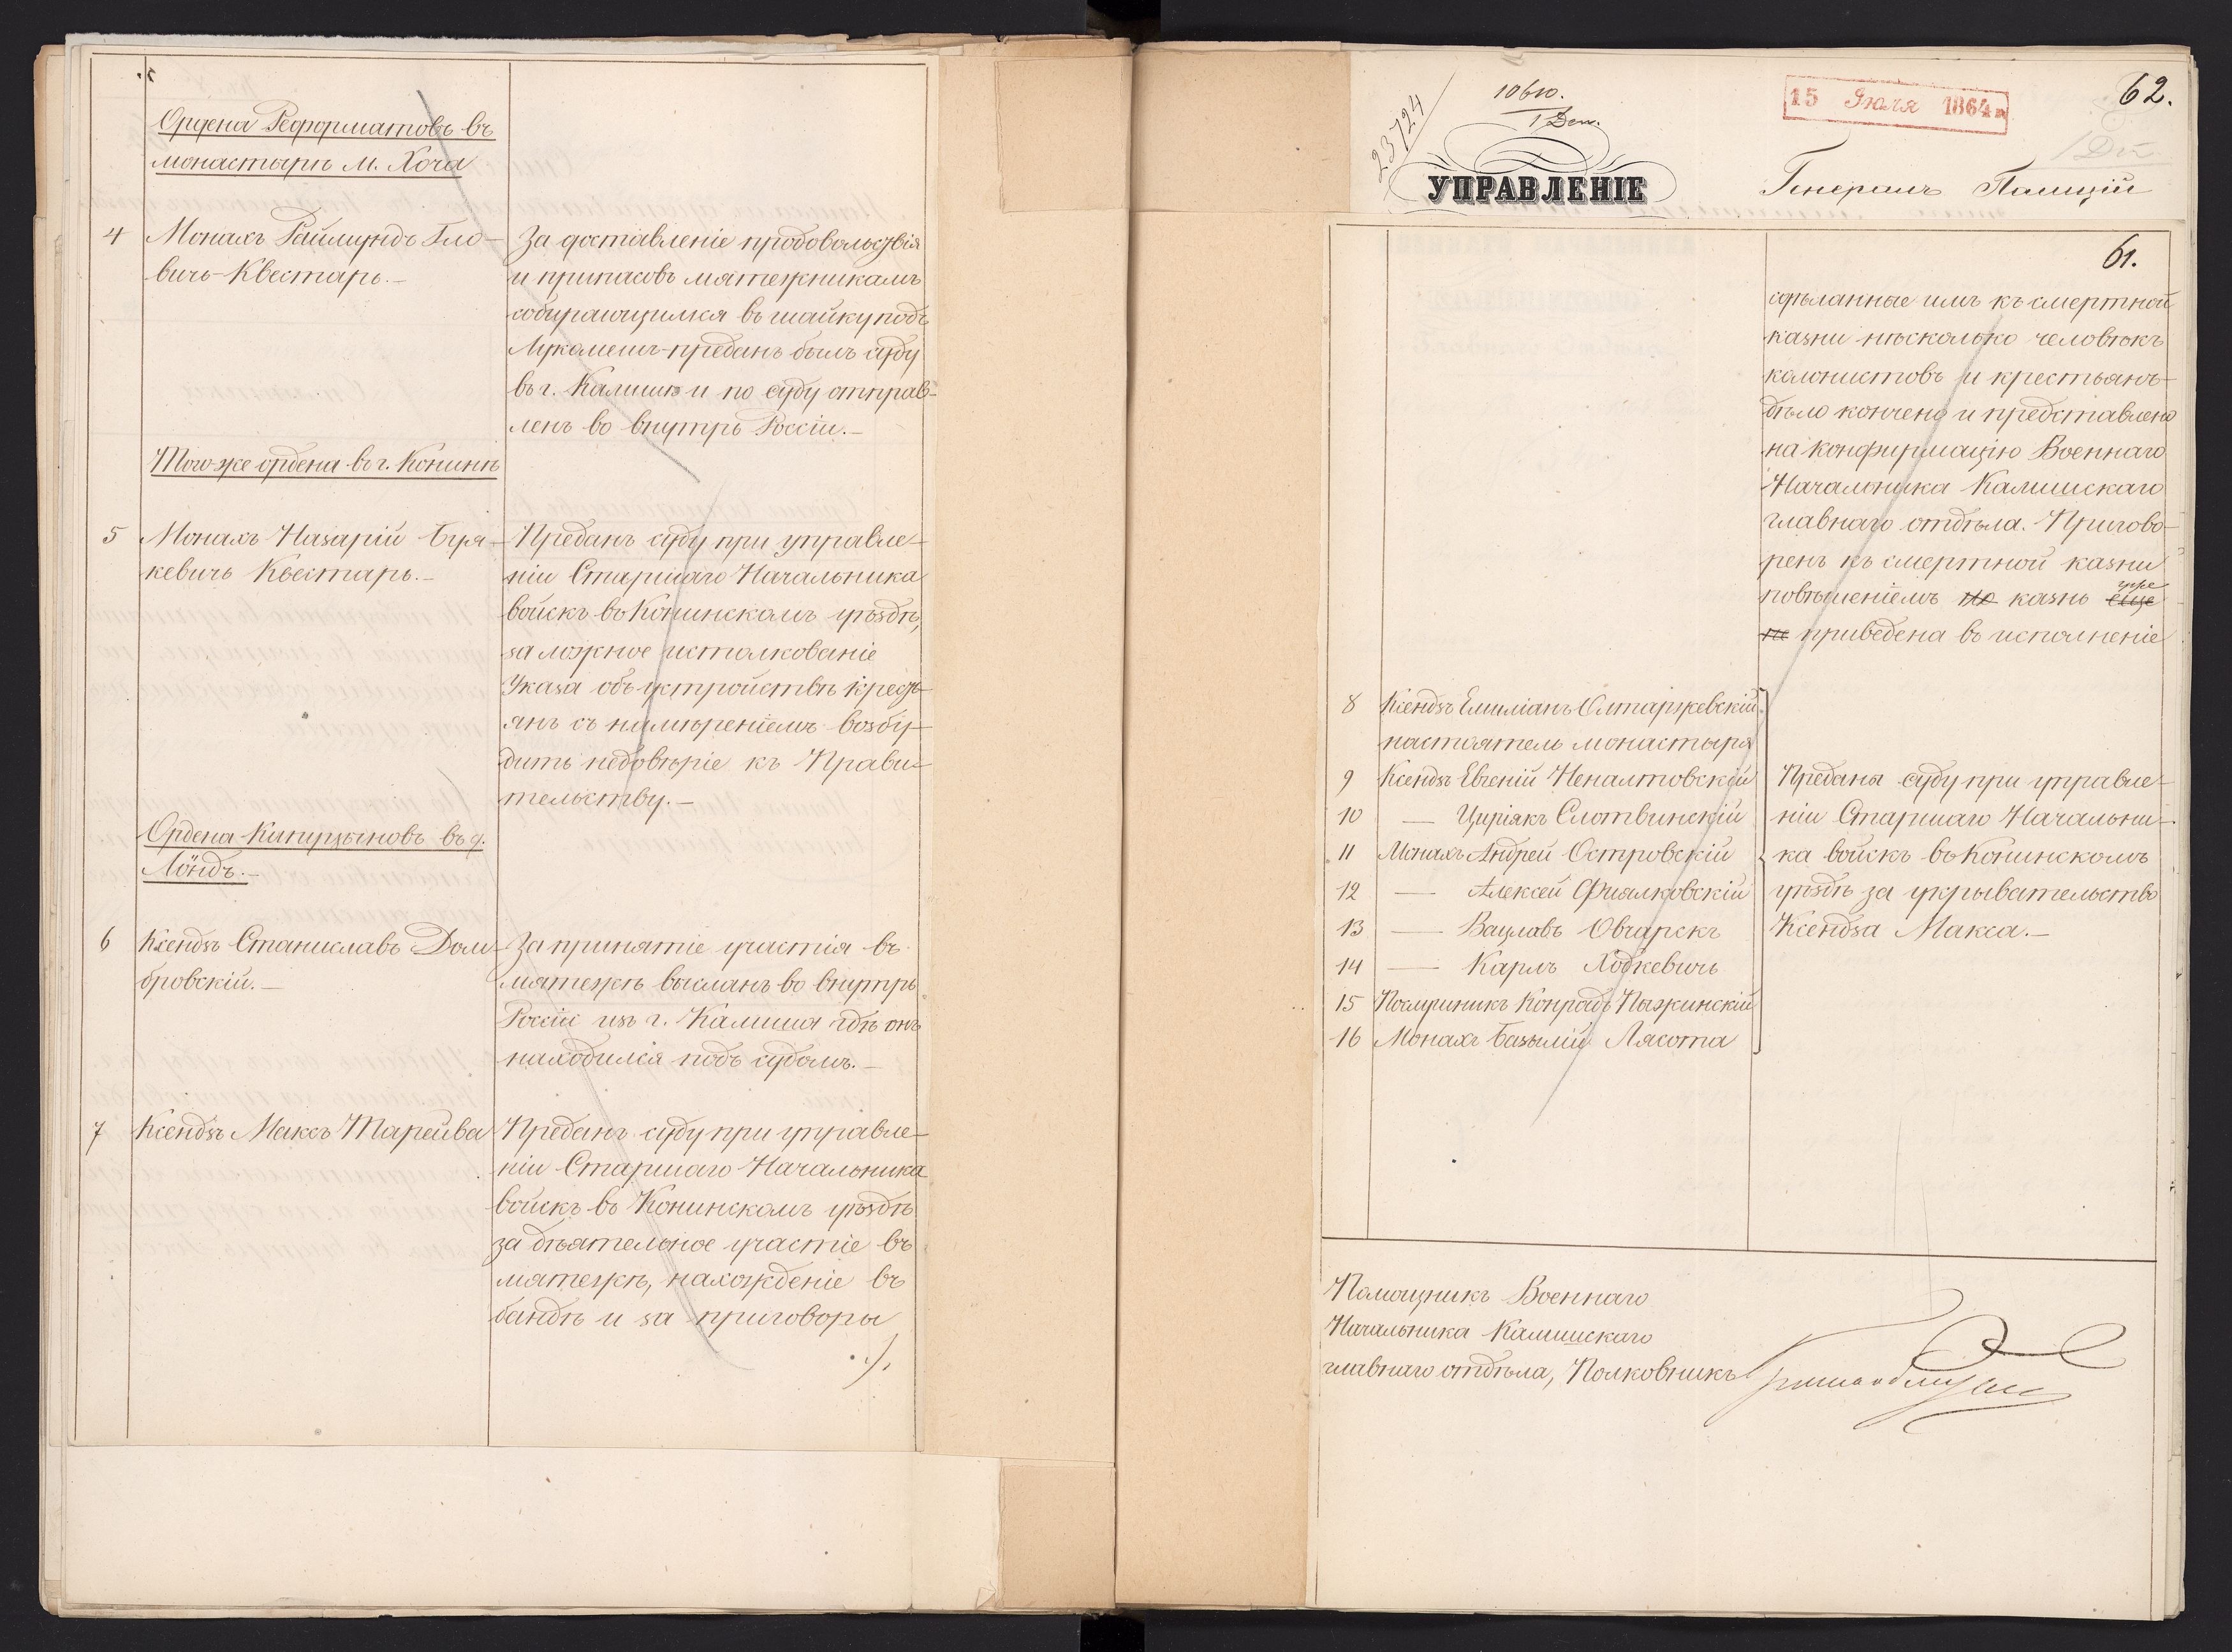 Ордена Реформатовъ въ
монастырѣ м. Хоча
4 Монахъ Раймундъ Гло-
вичъ-Квестарь.-
За доставленіе продовольствія
и припасовъ мятежникамъ
собирающимся въ шайку подъ
предан былъ суду
въ г. Калишѣ и по суду отправ-
ленъ во внутрь Россіи.-
Того-же ордена въ г. Конинѣ
5 Монахъ Назарій
кевичъ Квестарь.-
Преданъ суду при управле-
ніи Старшаго Начальника
войскъ въ Конинскомъ уѣздѣ,
за ложное истолкованіе
Указа объ устройствѣ кресть-
янъ съ намѣреніемъ возбу-
дить недовѣріе къ Прави-
тельству.-
Ордена Капуцыновъ въ д.
Лёндъ.-
6 Ксендзъ Станиславъ Дом-
бровскій.-
За принятіе участія въ
мятежѣ высланъ во внутрь
Россіи изъ г. Калиша гдѣ онъ
находился подъ судомъ.-
7 Ксендзъ Максъ Тарейва
Преданъ суду при управле-
ніи Старшаго Начальника
войскъ въ Конинскомъ уѣздѣ
за дѣятельное участіе въ
мятежѣ, нахожденіе въ
бандѣ и за приговоры
./.
23724
15 Іюля 1864
62.
УПРАВЛЕНІЕ
Генералъ Полиціи
61.
сдѣланные имъ къ смертной
казни нѣсколько человѣкъ
колонистовъ и крестьянъ-
дѣло кончено и представлено
на конфирмацію Военнаго
Начальника Калишскаго
главнаго отдѣла. Пригово-
ренъ къ смертной казни
повѣшеніемъ но казнь еще уже
не приведена въ исполненіе
8 Ксендзъ Емиліанъ Олтаржевскій
настоятель монастыря
9 Ксендзъ Евгеній Неналтовскій
10 — Циріякъ Слотвинскій
11 Монахъ Андрей Островскій
12 — Алексей Фиялковскій
13 — Вацлавъ Овчарекъ
14 — Карлъ Ходкевичъ
15 Послушникъ Конрадъ Пыжинскій
16 Монахъ Базылій Лясота
Преданы суду при управле-
ніи Старшаго Начальни-
ка войскъ въ Конинскомъ
уѣздѣ за укрывательство
Ксендза Макса.-
Помощникъ Военнаго
Начальника Калишскаго
главнаго отдѣла, Полковникъ